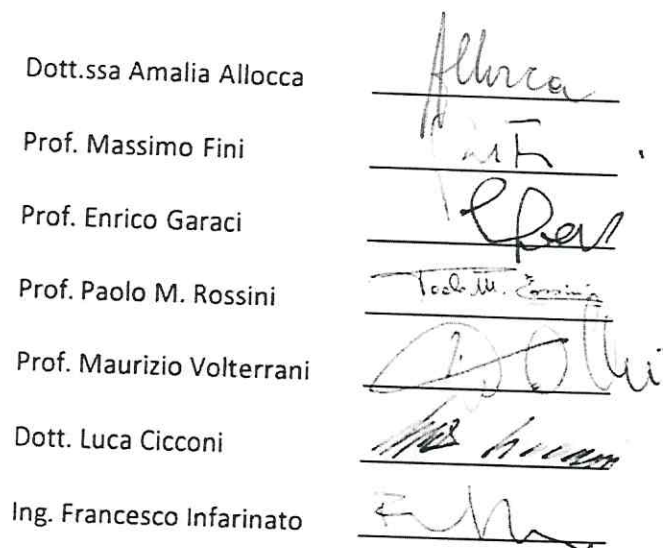 Dott.ssa Amalia Allocca Allocca
Prof. Massimo Fini
Prof. Enrico Garaci
Prof. Paolo M. Rossini Paolo M. Rossini
Prof. Maurizio Volterrani
Dott. Luca Cicconi
Ing. Francesco Infarinato